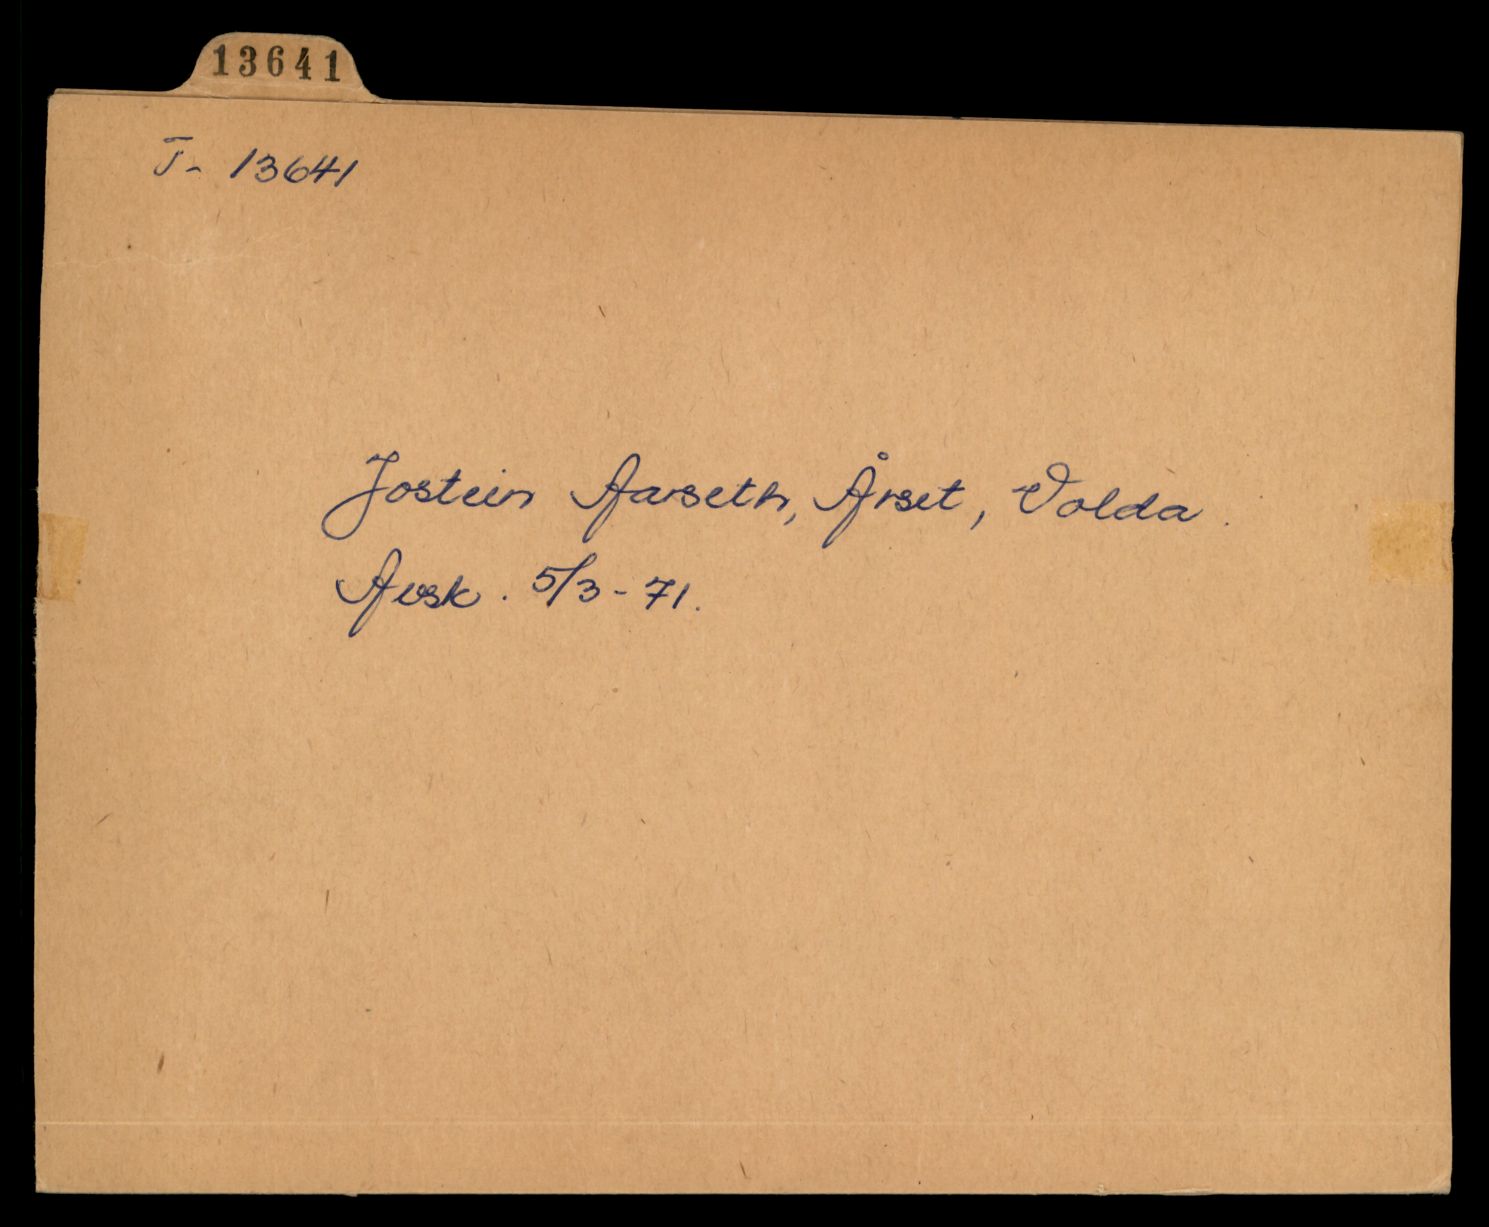 13641
T- 13641
Jostein Aarseth, Årset, Volda.
Avsk. 5/3-71.